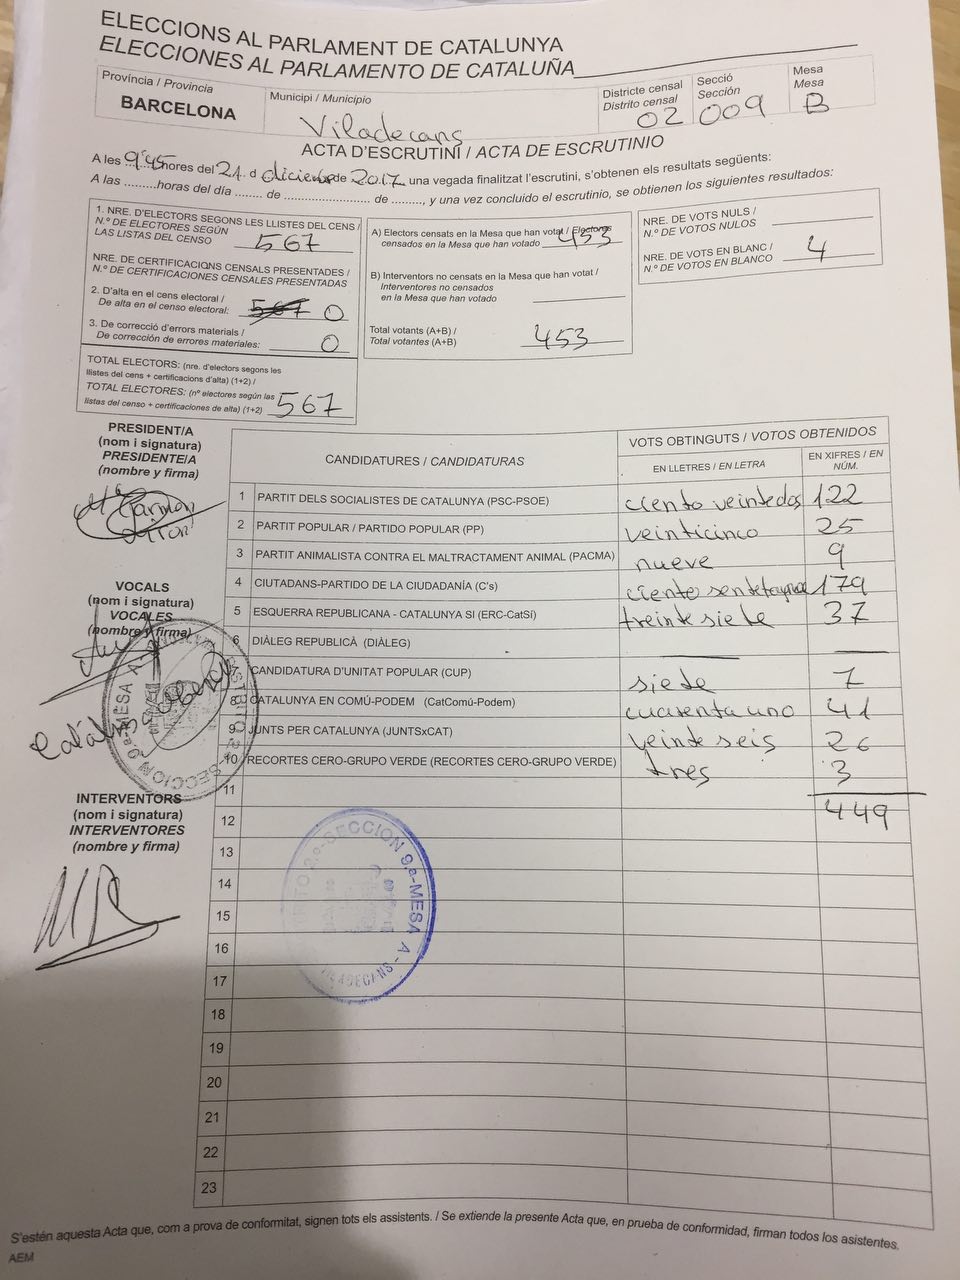 ELECCIONS AL PARLAMENT DE CATALUNYA
ELECCIONES AL PARLAMENTO DE CATALUÑA
Província / Provincia
BARCELONA
Municipi / Municipio
Viladecans
Districte censal
Distrito censal
02
Secció
Sección
009
Mesa
Mesa
B
ACTA D'ESCRUTINI / ACTA DE ESCRUTINIO
A les 9'45 hores del 21 d diciembre de 2017, una vegada finalitzat l'escrutini, s'obtenen els resultats següents:
A las .........horas del día ........ de .......................... de ........., y una vez concluido el escrutinio, se obtienen los siguientes resultados:
1. NRE. D'ELECTORS SEGONS LES LLISTES DEL CENS /
N.º DE ELECTORES SEGÚN
LAS LISTAS DEL CENSO 567
NRE. DE CERTIFICACIONS CENSALS PRESENTADES /
N.º DE CERTIFICACIONES CENSALES PRESENTADAS
2. D'alta en el cens electoral /
De alta en el censo electoral: 567 0
3. De correcció d'errors materials /
De corrección de errores materiales: 0
TOTAL ELECTORS: (nre. d'electors segons les
llistes del cens + certificacions d'alta) (1+2) /
TOTAL ELECTORES: (nº electores según las
listas del censo + certificaciones de alta) (1+2) 567
A) Electors censats en la Mesa que han votat / Electores
censados en la Mesa que han votado 453
B) Interventors no censats en la Mesa que han votat /
Interventores no censados
en la Mesa que han votado
Total votants (A+B) /
Total votantes (A+B) 453
NRE. DE VOTS NULS /
N.º DE VOTOS NULOS
NRE. DE VOTS EN BLANC /
N.º DE VOTOS EN BLANCO 4
PRESIDENT/A
(nom i signatura)
PRESIDENTE/A
(nombre y firma)
Mª Carmen
VOCALS
(nom i signatura)
VOCALES
(nombre y firma)
INTERVENTORS
(nom i signatura)
INTERVENTORES
(nombre y firma)
CANDIDATURES / CANDIDATURAS
VOTS OBTINGUTS / VOTOS OBTENIDOS
EN LLETRES / EN LETRA
EN XIFRES / EN NÚM.
1 PARTIT DELS SOCIALISTES DE CATALUNYA (PSC-PSOE) ciento veintedos 122
2 PARTIT POPULAR / PARTIDO POPULAR (PP) veinticinco 25
3 PARTIT ANIMALISTA CONTRA EL MALTRACTAMENT ANIMAL (PACMA) nueve 9
4 CIUTADANS-PARTIDO DE LA CIUDADANÍA (C's) ciento 179
5 ESQUERRA REPUBLICANA - CATALUNYA SI (ERC-CatSí) treinte siete 37
6 DIÀLEG REPUBLICÀ (DIÀLEG)
7 CANDIDATURA D'UNITAT POPULAR (CUP) siete 7
8 CATALUNYA EN COMÚ-PODEM (CatComú-Podem) cuarenta uno 41
9 JUNTS PER CATALUNYA (JUNTSxCAT) veinte seis 26
10 RECORTES CERO-GRUPO VERDE (RECORTES CERO-GRUPO VERDE) tres 3
11
12 449
13
14
15
16
17
18
19
20
21
22
23
SECCION 9.ª-MESA A - VILADECANS
S'estén aquesta Acta que, com a prova de conformitat, signen tots els assistents. / Se extiende la presente Acta que, en prueba de conformidad, firman todos los asistentes.
AEM